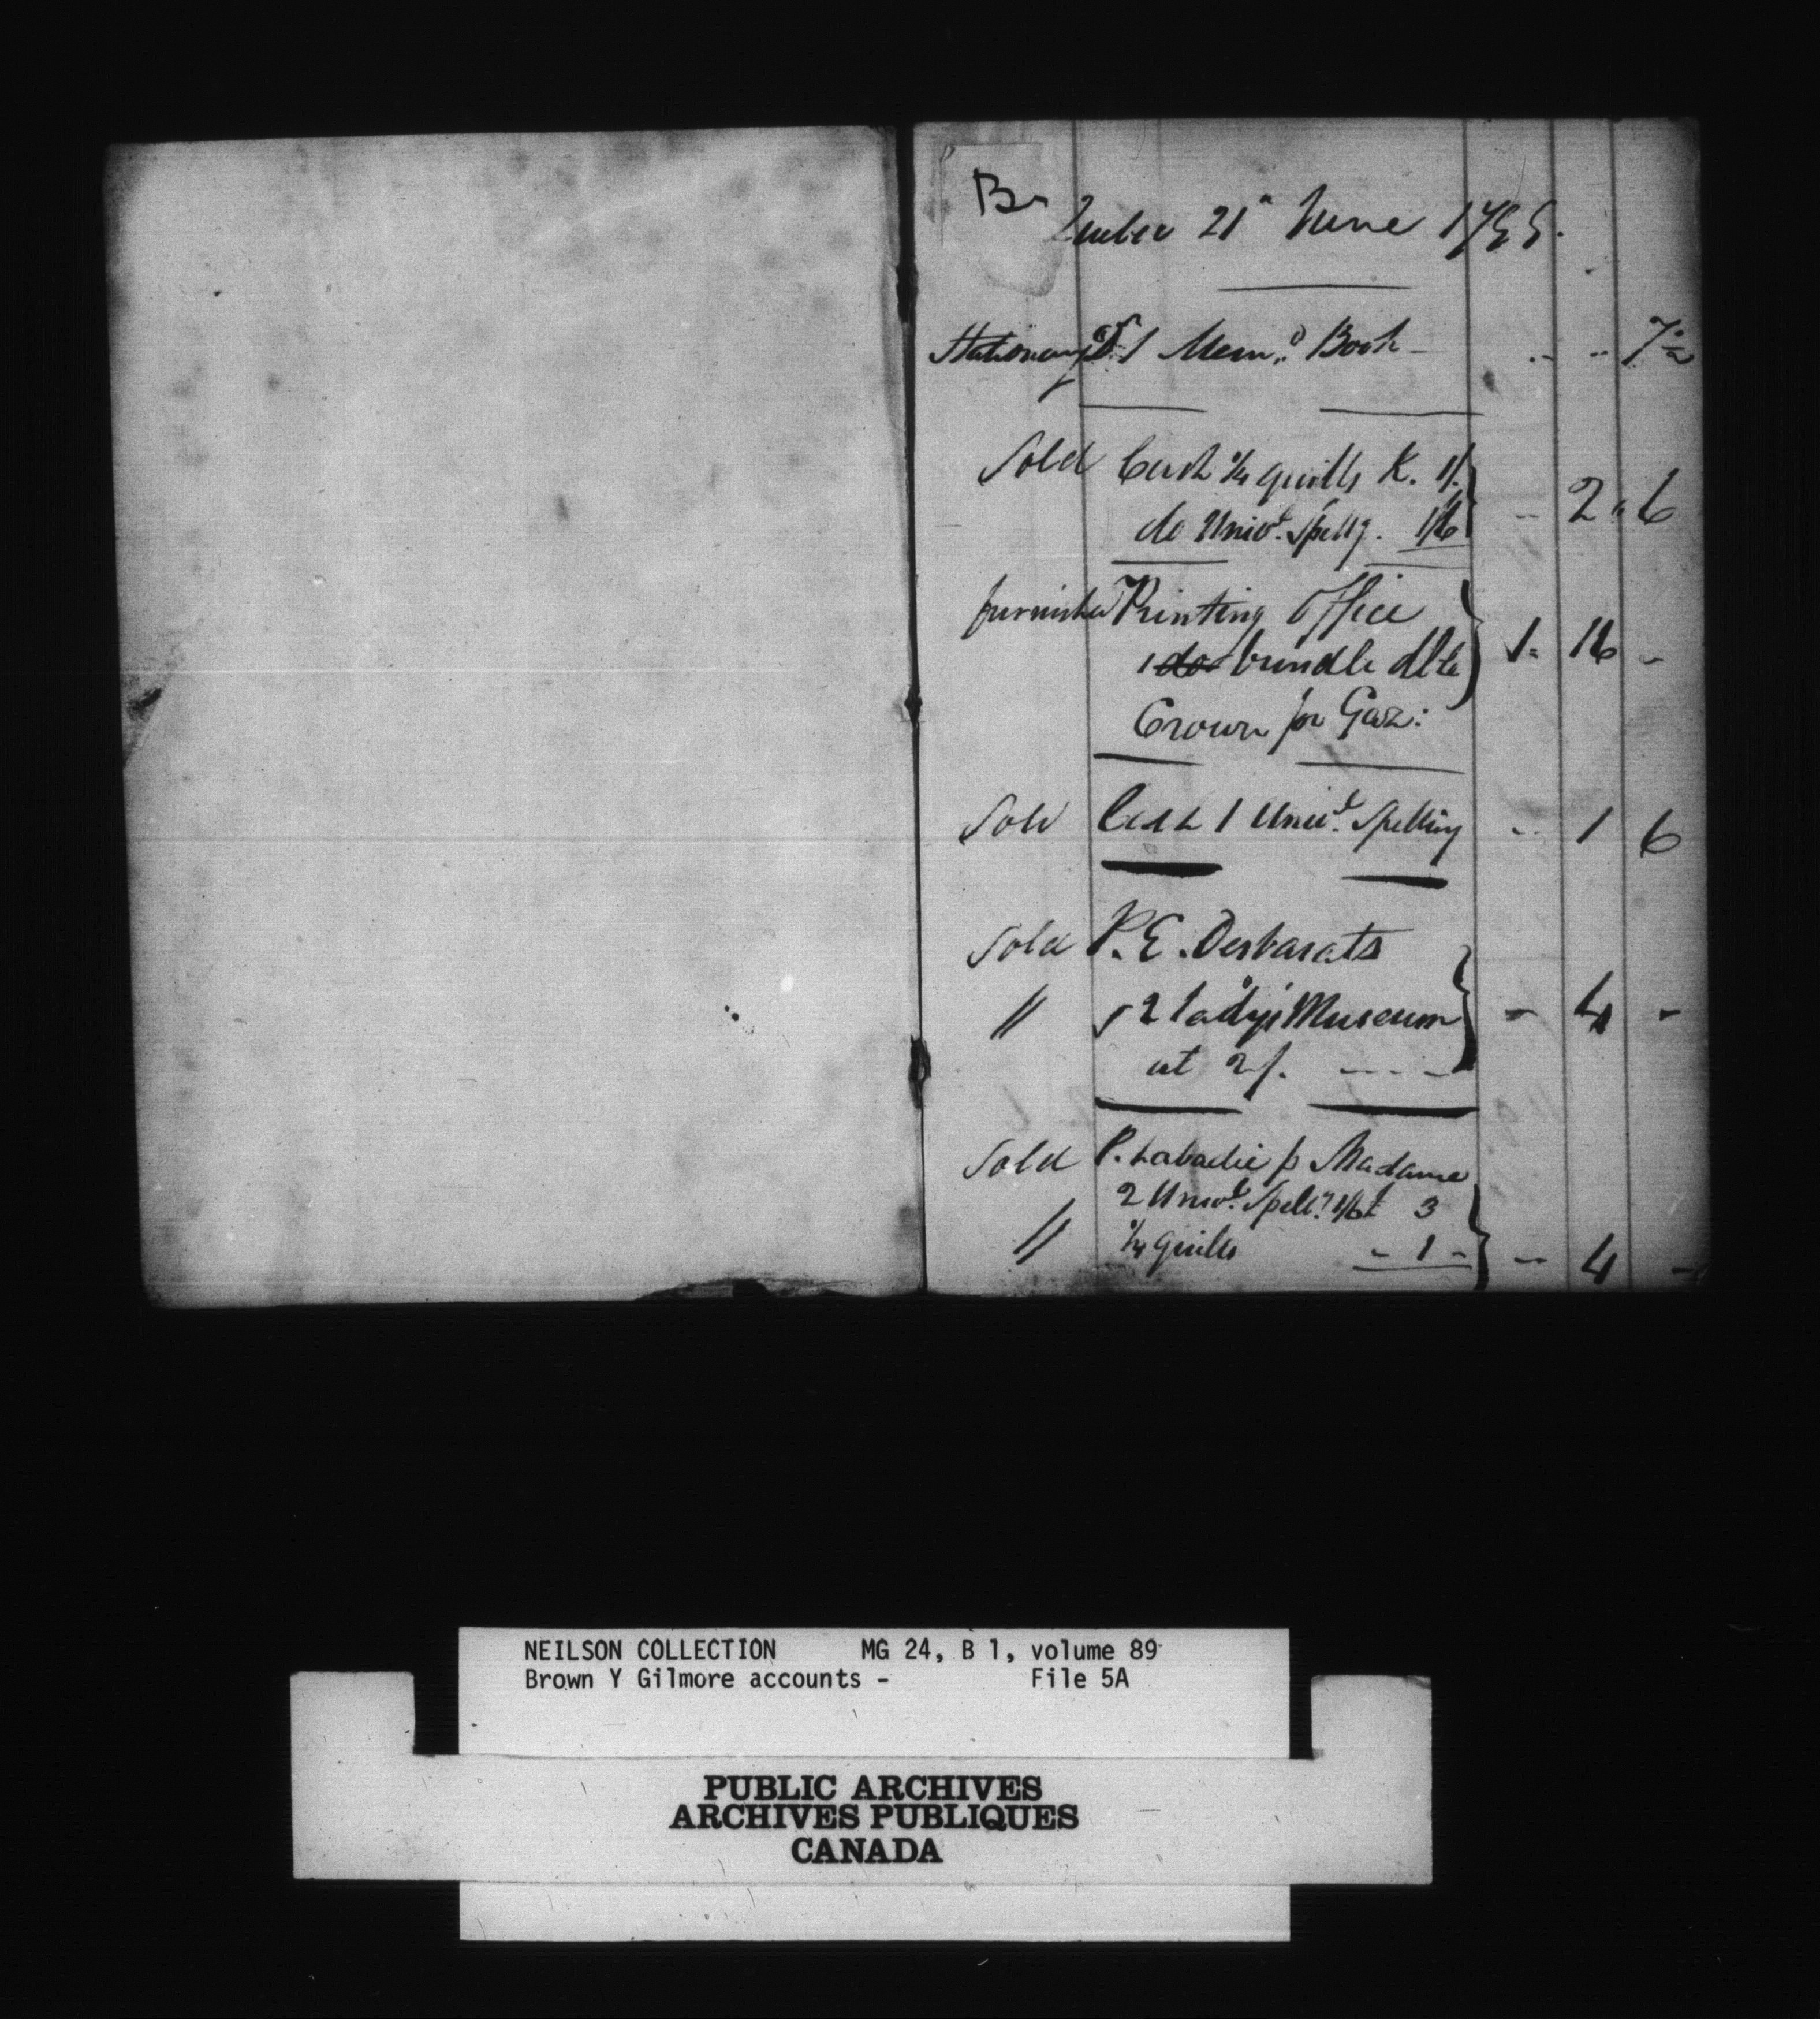 B
Quebec 21 June 1799.
Stationary 1 Mem.d Book - .. .. 7½
Sold Cash ¼ quills K. 1/.
do Univ.l Spellg. 1/6 } .. 2 " 6
furnished Printing Office
1 do bundle dble } 1 " 16 -
Crown for Gaz:
Sold Cash 1 Univ.l Spelling .. 1 6
Sold P. E. Desbarats
" 2 Lady's Museum } - 4 -
at 2/. - - - -
Sold P. Labadie p Madame
2 Univ.l Spell.g 1/6 3
" ¼ quills - 1 - } - 4 -
NEILSON COLLECTION MG 24, B 1, volume 89
Brown Y Gilmore accounts - File 5A
PUBLIC ARCHIVES
ARCHIVES PUBLIQUES
CANADA